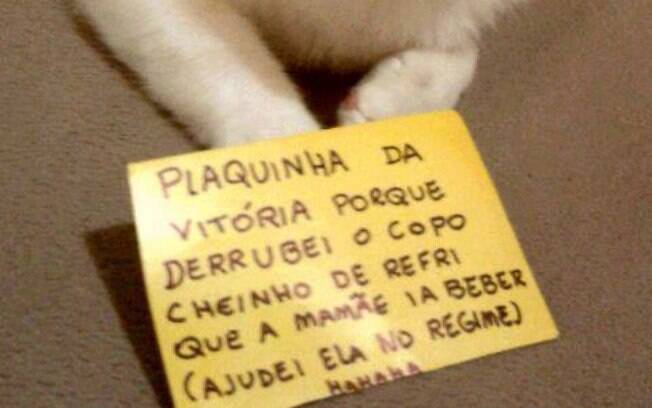 PLAQUINHA DA
VITÓRIA PORQUE
DERRUBEI O COPO
CHEINHO DE REFRI
QUE A MAMÃE IA BEBER
(AJUDEI ELA NO REGIME)
HAHAHA